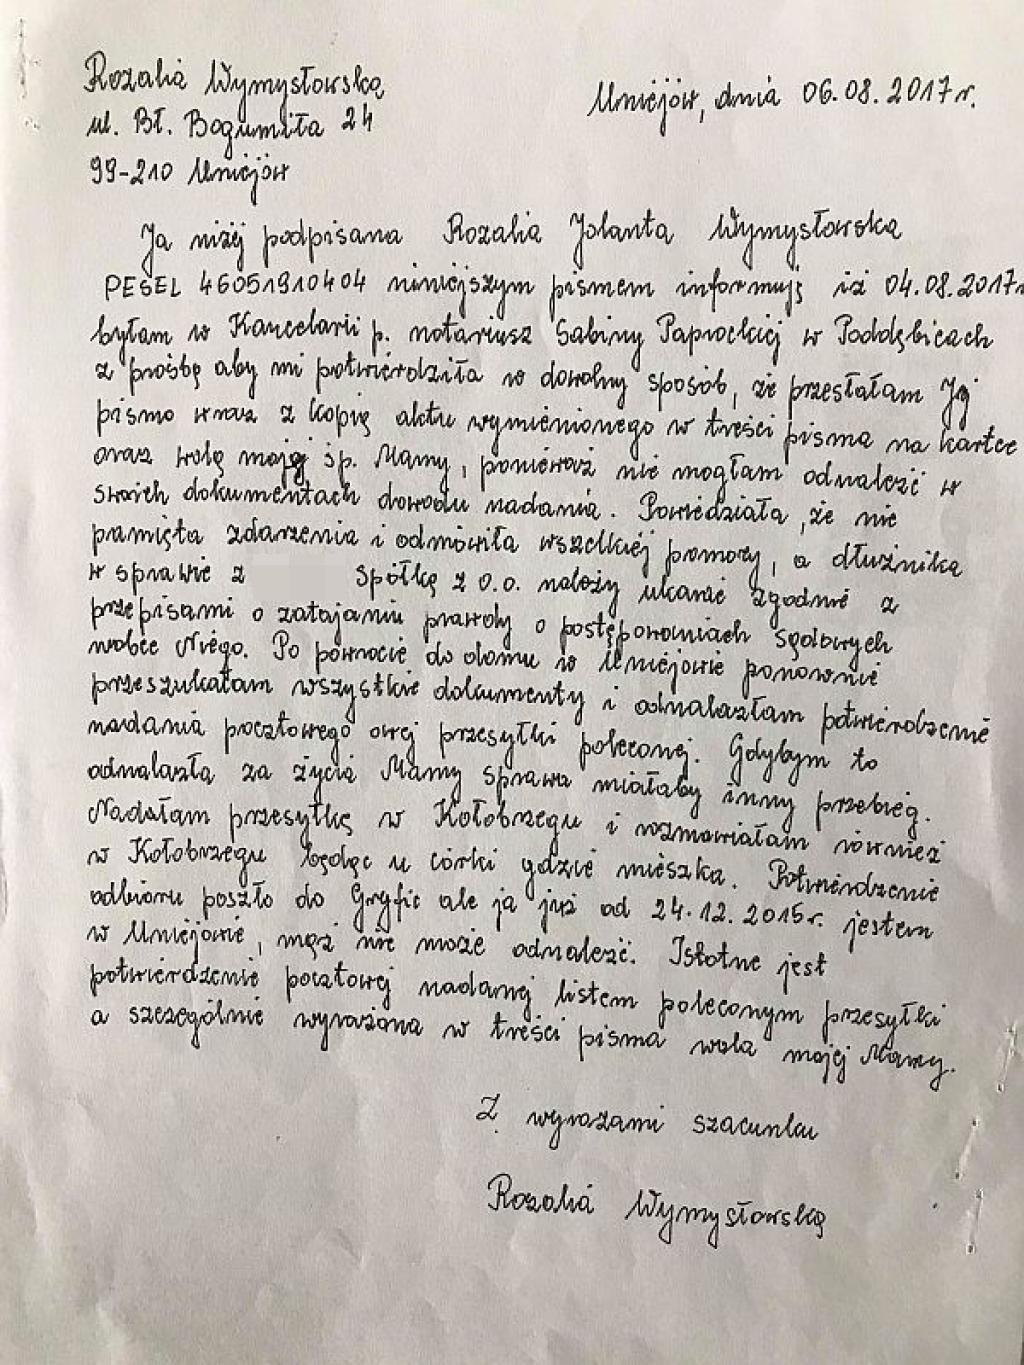 Rozalia Wymysłowska
Uniejów, dnia 06.08.2017 r.
ul. Bł. Bogumiła 24
99-210 Uniejów
Ja niżej podpisana Rozalia Jolanta Wymysłowska
PESEL 46051910404 niniejszym pismem informuję iż 04.08.2017r
byłam w Kancelarii p. notariusz Sabiny Paprockiej w Poddębicach
z prośbą aby mi potwierdziła w dowolny sposób, że przesłałam Jej
pismo wraz z kopią aktu wymienionego w treści pisma na kartce
oraz wolę mojej śp. Mamy, ponieważ nie mogłam odnaleźć w
swoich dokumentach dowodu nadania. Powiedziała, że nie
pamięta zdarzenia i odmówiła wszelkiej pomocy, a dłużnika
w sprawie z spółką z o.o. należy ukarać zgodnie z
przepisami o zatajaniu prawdy o postępowaniach sądowych
wobec Niego. Po powrocie do domu w Uniejowie ponownie
przeszukałam wszystkie dokumenty i odnalazłam potwierdzenie
nadania pocztowego owej przesyłki poleconej. Gdybym to
odnalazła za życia Mamy sprawa miałaby inny przebieg.
Nadałam przesyłkę w Kołobrzegu i rozmawiałam również
w Kołobrzegu będąc u córki gdzie mieszka. Potwierdzenie
odbioru poszło do Gryfic ale ja już od 24.12.2015r. jestem
w Uniejowie, mąż nie może odnaleźć. Istotne jest
potwierdzenie pocztowej nadanej listem poleconym przesyłki
a szczególnie wyrażona w treści pisma wola mojej Mamy.
Z wyrazami szacunku
Rozalia Wymysłowska